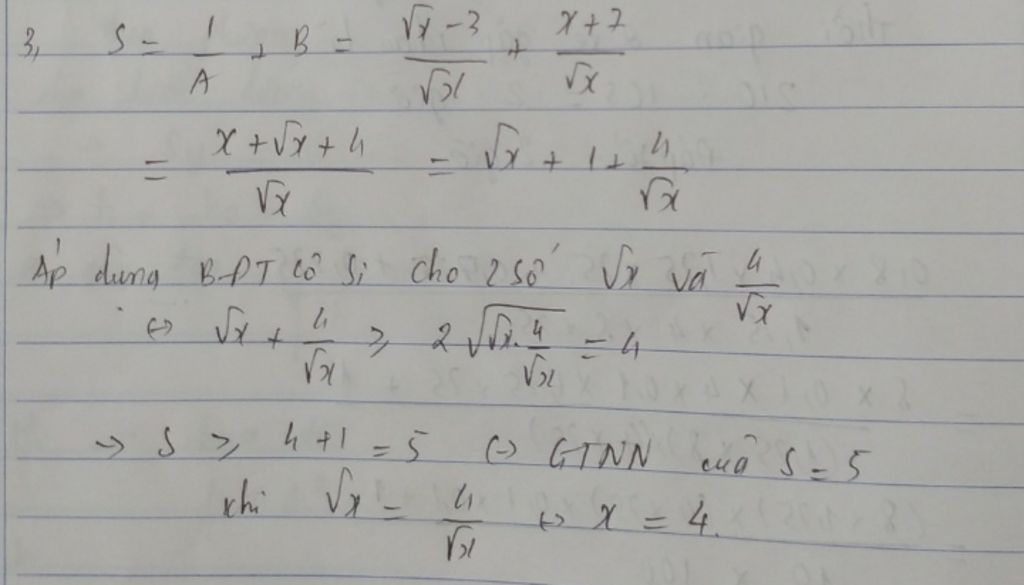 3, S = 1/A + B = (√x - 3)/√x + (x + 7)/√x
= (x + √x + 4)/√x = √x + 1 + 4/√x
Áp dụng BĐT Cô Si cho 2 số √x và 4/√x
⇔ √x + 4/√x ≥ 2√(√x . 4/√x) = 4
→ S ≥ 4 + 1 = 5 ⇔ GTNN của S = 5
khi √x = 4/√x ⇔ x = 4.